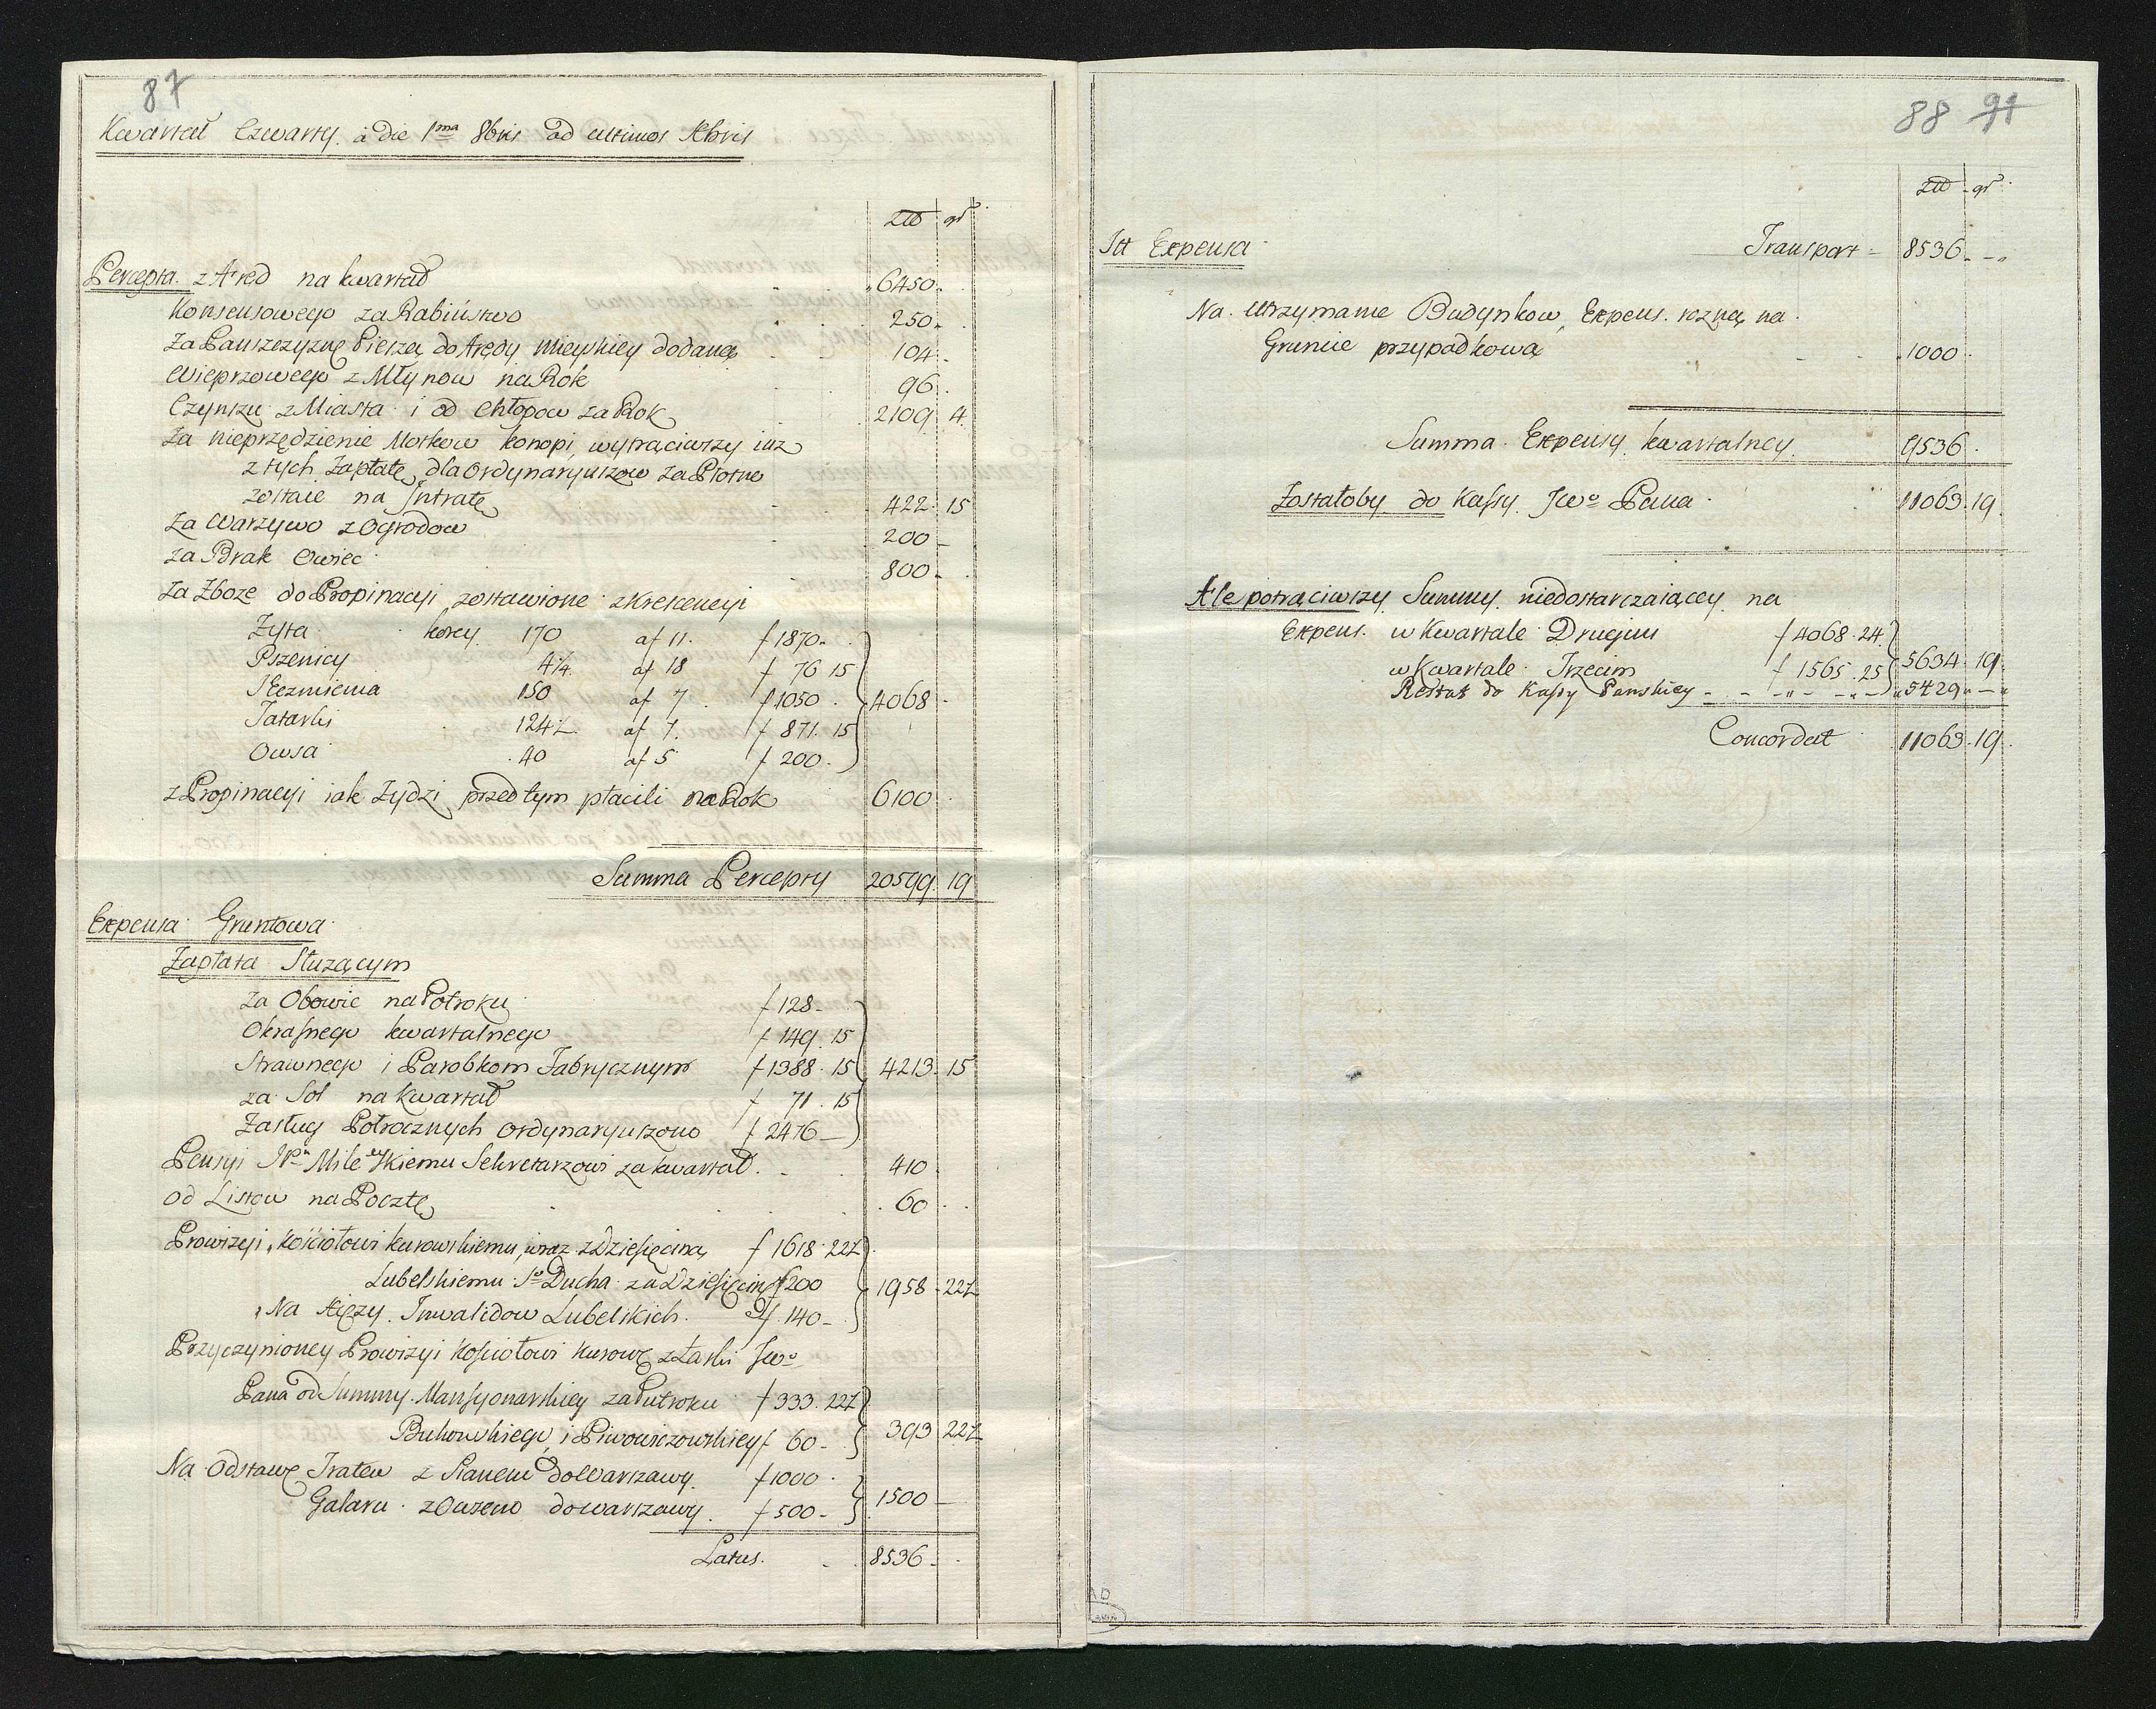 87
Kwartał Czwarty. à die 1ma 8bris ad ultimos Xbris
Złł gr
Percepta. z Aręd na kwartał 6450.
Konsensowego za Rabińskwo 250.
Za Pańszczyznę Pieszą do Arędy mieyskiey dodaną 104.
Wieprzowego z Młynow na Rok 96.
Czynszu z Miasta i od Chłopow za Rok 2109 4.
Za nieprzędzienie Motkow konopi, wytrąciwszy iuz
z tych Zapłatę dla Ordynaryuszow za Płotno
zostaie na Intratę 422. 15
Za Warzywo z Ogrodow 200
za Brak Owiec 800.
Za Zboże do Propinacyi zostawione z Krescencyi
Żyta korcy 170 af 11. f 1870.
Pszenicy 4¼ af 18 f 76 15
Ięczmienia 150 af 7 f 1050
Tatarki 124½ af 7. f 871. 15
Owsa 40 af 5 f 200.
4068
z Propinacyi iak Żydzi przed tym płacili na Rok 6100
Summa Percepty 20599 19
Expensa Gruntowa
Zapłata Służącym
za Obowie na Połroku f 128
Okrasnego kwartalnego f 149. 15
Strawnego i Parobkom Fabrycznym f 1388. 15
4213. 15
za Sol na Kwartał f 71. 15
Zasług Połrocznych Ordynaryuszow f 2476
Pensyi JPu Mile Skiemu Sekretarzowi za kwartał. 410
od Listow na Pocztę 60
Prowizyi, Kościołowi Kurowskiemu, wraz z Dziesięciną f 1618. 22½
Lubelskiemu So Ducha za Dziesięcinę f 200
1958. 22½
Na Xięży Inwalidow Lubelskich. f. 140
Przyczynioney Prowizyi Kościołowi Kurowę z Łaski JWo
Pana od Summy Mansyonarskiey za Pułroku f 333. 22½
393 22½
Bukowskiego, i Piwowiczowskiey f 60
Na Odstawę Tratew z Sianem do Warszawy. f 1000
1500
Galaru z Owsem do Warszawy. f 500
Latus. 8536
88 91
Złł gr
Itt Expensa Transport 8536
Na Utrzymanie Budynkow, Expens. rożną na
Gruncie przypadkową 1000
Summa Expensy kwartalney 9536
Zostałoby do Kassy JWo Pana 11063. 19.
Ale potrąciwszy Summy niedostarczaiącey na
Expens. w Kwartale Drugim f 4068. 24
w Kwartale Trzecim f 1565. 25
5634. 19
Restat do Kassy Panskiey 5429
Concordat 11063. 19.